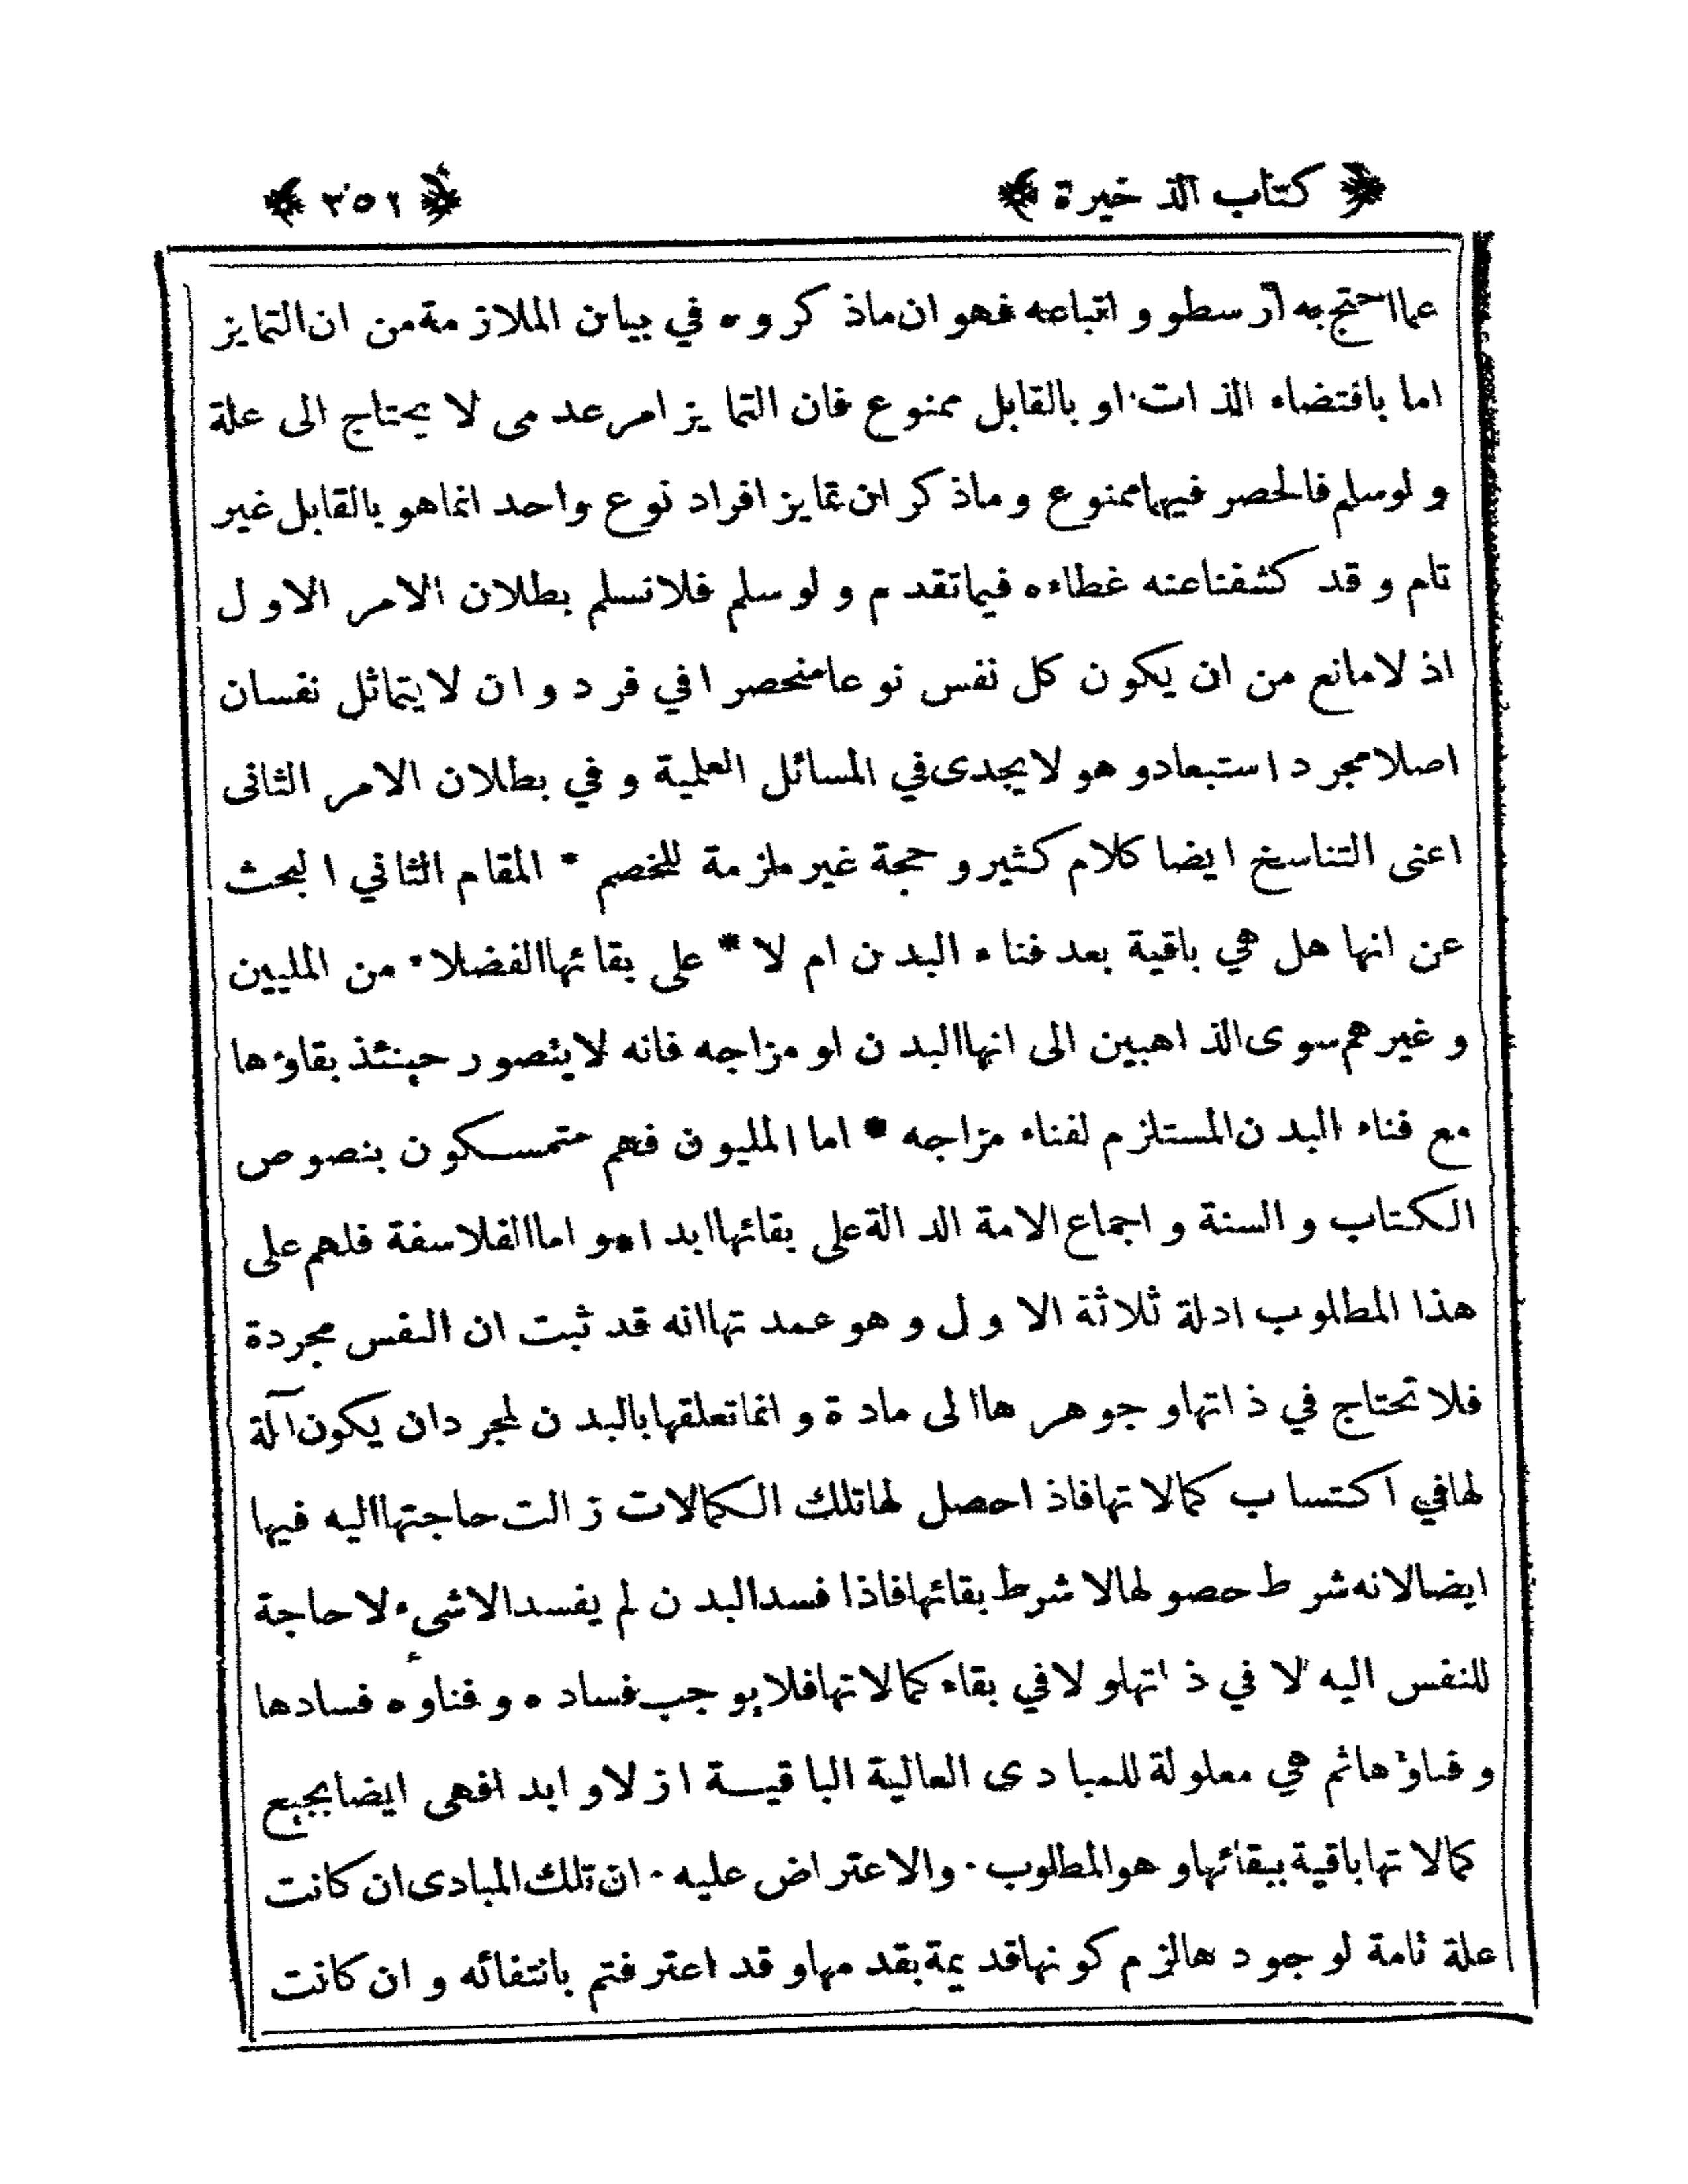 ﴿ كتاب الذخيرة ﴾ ﴿ ٣٥١ ﴾
عما احتج به أرسطو و اتباعه فهو ان ماذكروه في بيان الملازمة من ان التمايز
اما باقتضاء الذات او بالقابل ممنوع فان التمايز امر عدمى لا يحتاج الى علة
و لوسلم فالحصر فيهما ممنوع و ماذكر ان تمايز افراد نوع واحد انما هو بالقابل غير
تام و قد كشفنا عنه غطاءه فيما تقدم و لوسلم فلا نسلم بطلان الامر الاول
اذ لا مانع من ان يكون كل نفس نوعا منحصرا في فرد و ان لا يتماثل نفسان
اصلا مجرد استبعاد و هو لا يجدى في المسائل العلمية و في بطلان الامر الثانى
اعنى التناسخ ايضا كلام كثير و حجة غير ملزمة للخصم * المقام الثاني البحث
عن انها هل هي باقية بعد فناء البدن ام لا * على بقائها الفضلاء من المليين
و غيرهم سوى الذاهبين الى انها البدن او مزاجه فانه لا يتصور حينئذ بقاؤها
مع فناء البدن المستلزم لفناء مزاجه * اما المليون فهم متمسكون بنصوص
الكتاب و السنة و اجماع الامة الدالة على بقائها ابدا * و اما الفلاسفة فلهم على
هذا المطلوب ادلة ثلاثة الاول و هو عمدتها انه قد ثبت ان النفس مجردة
فلا تحتاج في ذاتها و جوهرها الى مادة و انما تعلقها بالبدن لمجرد ان يكون آلة
لها في اكتساب كمالاتها فاذا حصل لها تلك الكمالات زالت حاجتها اليه فيها
ايضا لانه شرط حصولها لا شرط بقائها فاذا فسد البدن لم يفسد الا شيء لا حاجة
للنفس اليه لا في ذاتها و لا في بقاء كمالاتها فلا يوجب فساده و فناوه فسادها
و فناؤها ثم هي معلولة للمبادى العالية الباقية ازلا و ابدا فهى ايضا بجميع
كمالاتها باقية ببقائها و هو المطلوب · والاعتراض عليه · ان تلك المبادى ان كانت
علة تامة لوجودها لزم كونها قديمة بقدمها و قد اعترفتم بانتفائه و ان كانت